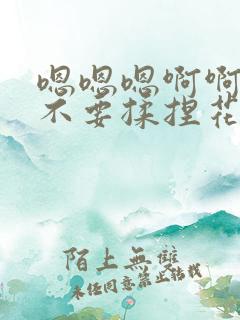 嗯嗯嗯啊啊
不要揉捏花
陌上無雙
未经同意禁止转载